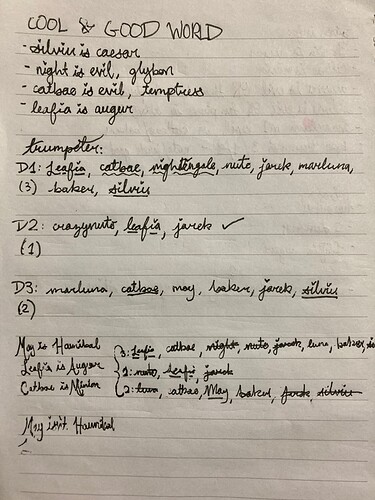 COOL & GOOD WORLD
- silviu is caesar
- night is evil, glybon
- catbae is evil, temptress
- leafia is augur
trumpeter:
D1: Leafia, catbae, nightengale, nuto, jarek, marluna,
(3) baker, silviu
D2: crazynuto, leafia, jarek ✓
(1)
D3: marluna, catbae, may, baker, jarek, silviu
(2)
May is Hannibal
Leafia is Augur
Catbae is Minion
3: leafia, catbae, night, nuto, jarek, luna, baker,
1: nuto, leafia, jarek
2: luna, catbae, May, baker, jarek, silviu
May isn't Hannibal